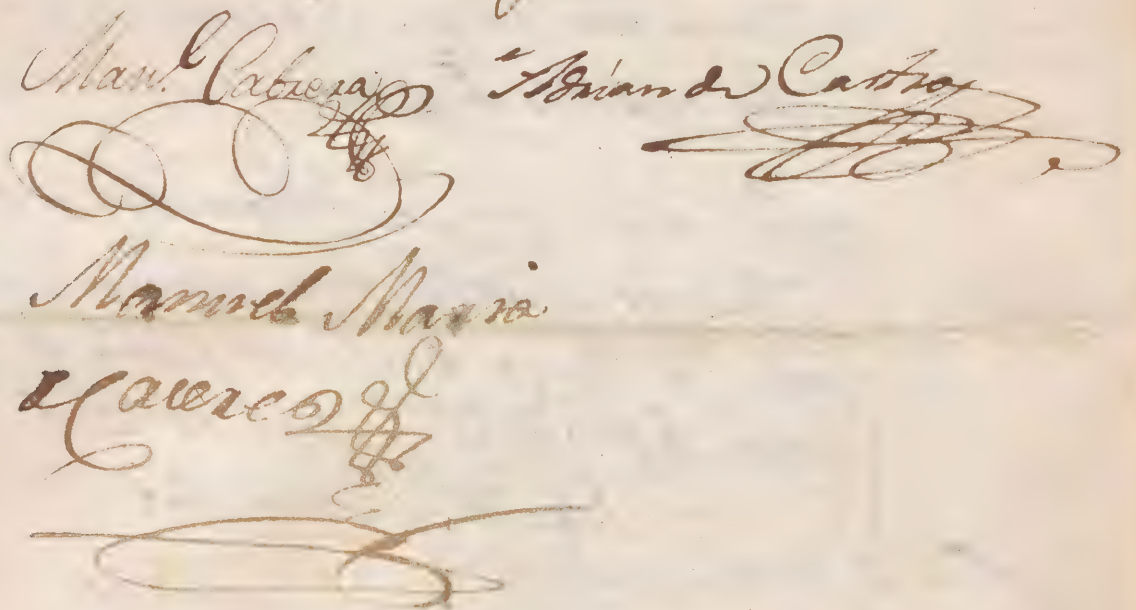 Man.l Cabrera Adrian de Castro
Manuel Maria
de Caceres